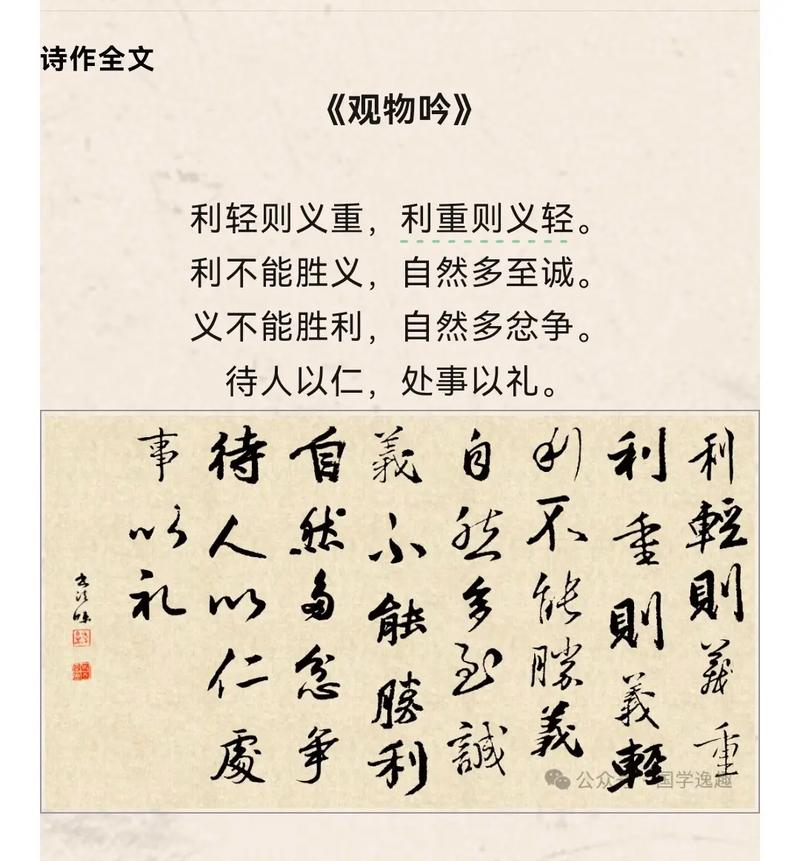 诗作全文
《观物吟》
利轻则义重，利重则义轻。
利不能胜义，自然多至诚。
义不能胜利，自然多忿争。
待人以仁，处事以礼。
利輕則義重
利重則義輕
利不能勝義
自然多至誠
義不能勝利
自然多忿争
待人以仁處
事以礼
公众号 国学逸趣